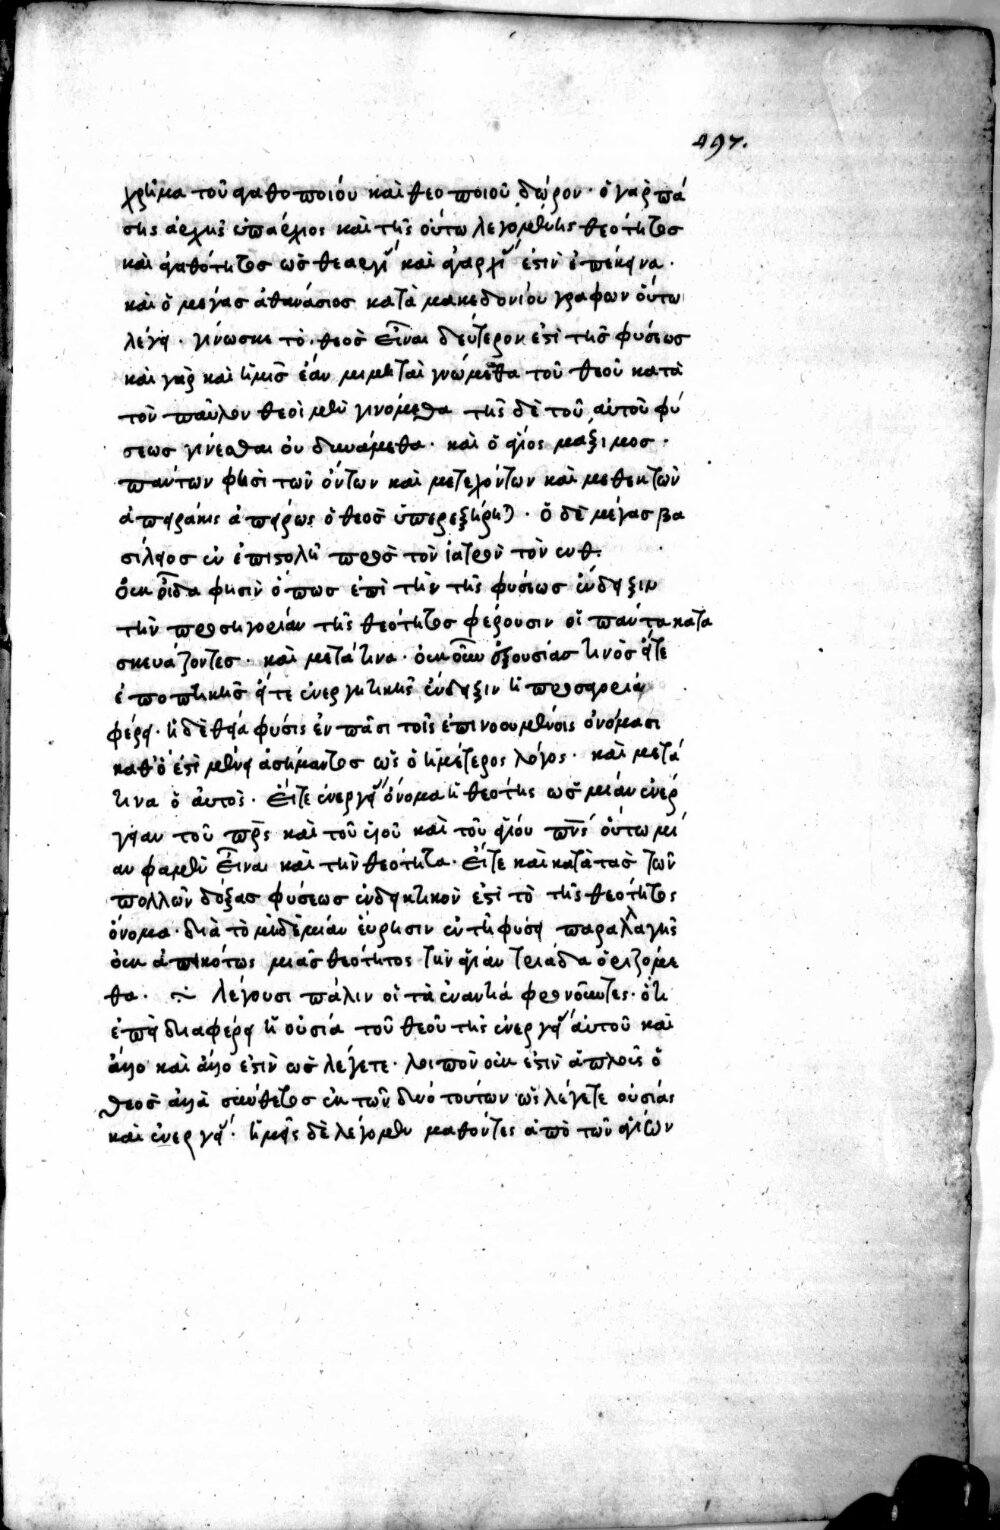 497.
χρῆμα τοῦ ἀγαθοποιοῦ καὶ θεοποιοῦ δώρου· ὁ γὰρ πά
σης ἀρχῆς ὑπάρχιος καὶ τῆς οὕτω λεγομένης θεότητος
καὶ ἀγαθότητος ὡς θεαρχί καὶ ἀγαρχί ἐστὶν ἐπέκεινα·
καὶ ὁ μέγας ἀθανάσιος κατὰ μακεδονίου γράφων οὕτω
λέγει· γίνωσκε τὸ θεὸς εἶναι δεύτερον ἐστὶ τῆς φύσεως
καὶ γὰρ καὶ ἡμεῖς ἐάν μιμηταὶ γνώμεθα τοῦ θεοῦ κατὰ
τὸν παῦλον θεοὶ μὲν γινόμεθα τῆς δὲ τοῦ αὐτοῦ φύ
σεως γίνεσθαι οὐ δυνάμεθα· καὶ ὁ ἅγιος μάξιμος·
πάντων φησὶ τῶν ὄντων καὶ μετεχόντων καὶ μεθεκτῶν
ἀπειράκις ἀπείρως ὁ θεὸς ὑπερεξήρηται· ὁ δὲ μέγας βα
σίλειος ἐν ἐπιστολῆ πρὸς τὸν ἰατρὸν τὸν ευθ·
οὐκ οἶδα φησὶν ὅπως ἐπὶ τὴν τῆς φύσεως ἔνδειξιν
τὴν προσηγορίαν τῆς θεότητος φέρουσιν οἱ πάντα κατα
σκευάζοντες· καὶ μετά τινα· οὐκοῦν ἐξουσίας τινὸς εἴτε
ἐποπτικῆς εἴτε ἐνεργητικῆς ἔνδειξιν ἡ προσηγορία
φέρει· ἡ δὲ θεία φύσις ἐν πᾶσι τοῖς ἐπινοουμένοις ὀνόμασι
καθ' ὅ ἐστὶ μένει ἀσήμαντος ὡς ὁ ἡμέτερος λόγος· καὶ μετά
τινα ὁ αὐτός· εἴτε ἐνεργεί ὄνομα ἡ θεότης ὡς μίαν ἐνέρ
γειαν τοῦ πρς καὶ τοῦ υἱοῦ καὶ τοῦ ἁγίου πνς οὕτω μί
αν φαμὲν εἶναι καὶ τὴν θεότητα· εἴτε καὶ κατὰ τὰς τῶν
πολλῶν δόξας φύσεως ἐνδεικτικὸν ἐστὶ τὸ τῆς θεότητος
ὄνομα· διὰ τὸ μηδεμίαν εὑρίσειν ἐν τῆ φύσει παραλλαγῆς
οὐκ ἀπεικότως μιᾶς θεότητος τὴν ἁγίαν τριάδα ὁριζόμε
θα· ÷ λέγουσι πάλιν οἱ τὰ ἐναντία φρονοῦντες· ὅτι
ἐπεὶ διαφέρει ἡ οὐσία τοῦ θεοῦ τῆς ἐνεργεί αὐτοῦ καὶ
ἄλλο καὶ ἄλλο ἐστὶν ὡς λέγετε· λοιπὸν οὐκ ἐστὶν ἁπλοῦς ὁ
θεὸς ἀλλὰ σύνθετος ἐκ τῶν δύο τούτων ὡς λέγετε οὐσίας
καὶ ἐνεργεί· ἡμεῖς δὲ λέγομεν μαθόντες ἀπὸ τῶν ἁγίων